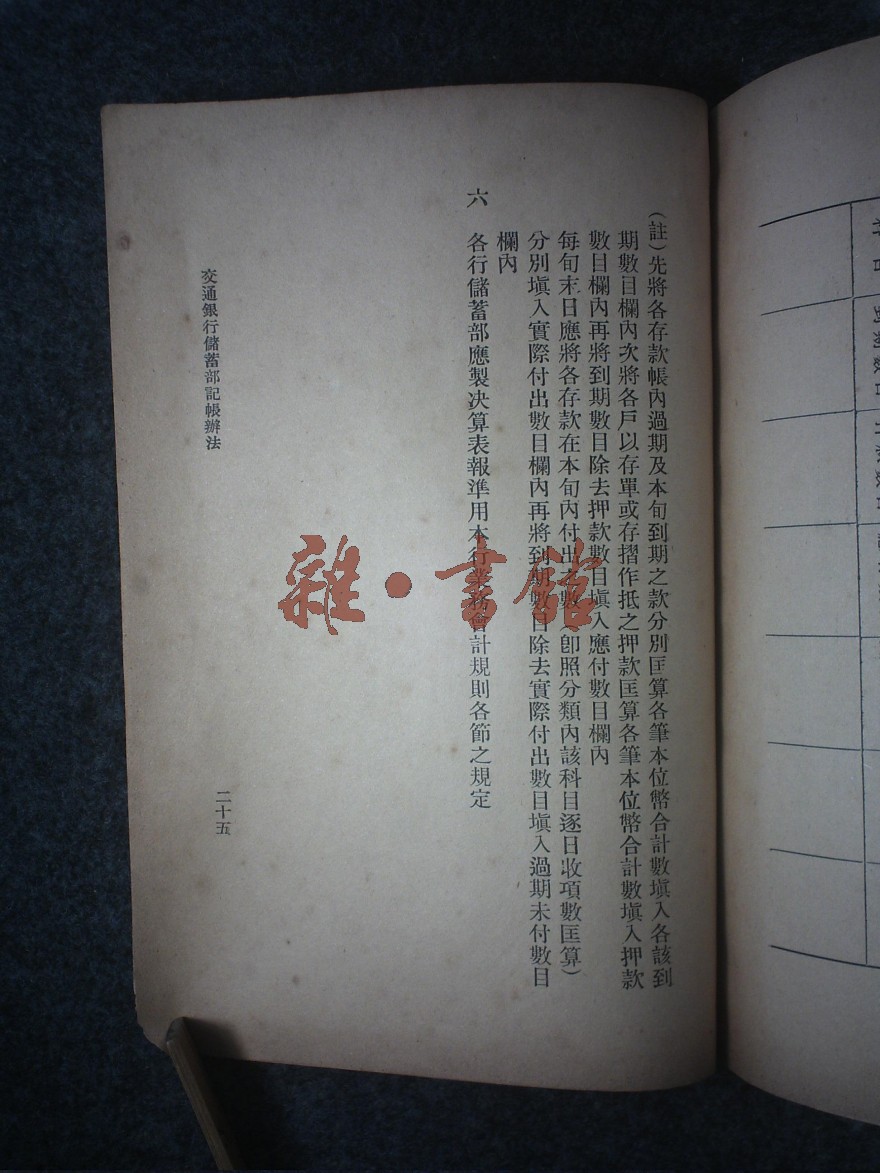 (註)先將各存款帳內過期及本旬到期之款分別匡算各筆本位幣合計數塡入各該到
期數目欄內次將各戶以存單或存摺作抵之押款匡算各筆本位幣合計數塡入押款
數目欄內再將到期數目除去押款數目塡入應付數目欄內
每旬末日應將各存款在本旬內付出之數(卽照分類內該科目逐日收項數匡算)
分別塡入實際付出數目欄內再將到期數目除去實際付出數目塡入過期未付數目
欄內
六 各行儲蓄部應製決算表報準用本行業務會計規則各節之規定
交通銀行儲蓄部記帳辦法
二十五
雜·書館